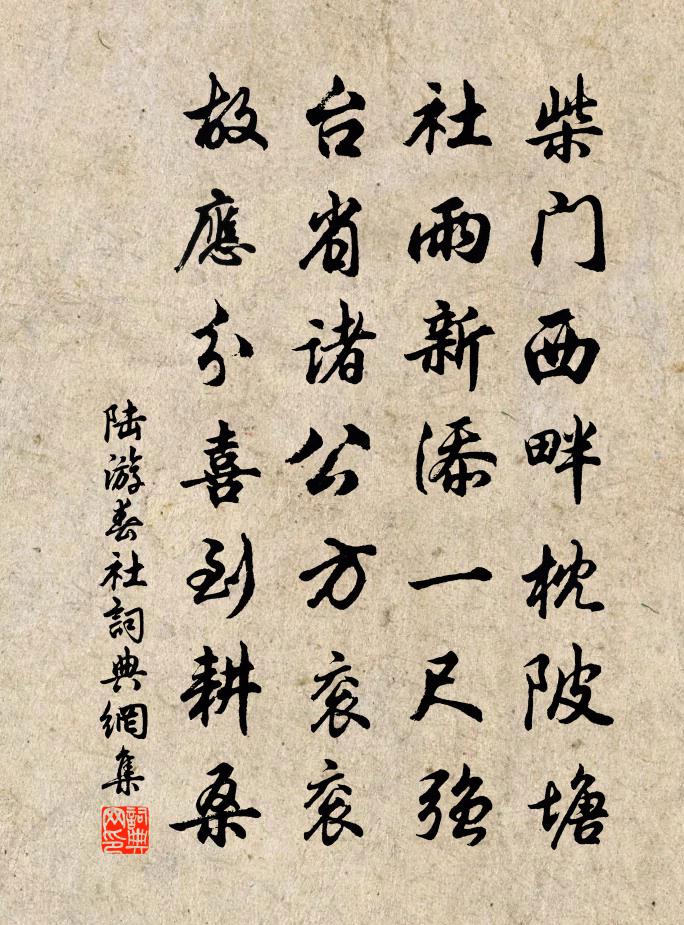 柴门西畔枕陂塘
社雨新添一尺强
台省諸公方衮衮
故應分喜到耕桑
陆游春社詞典網集
詞典网印